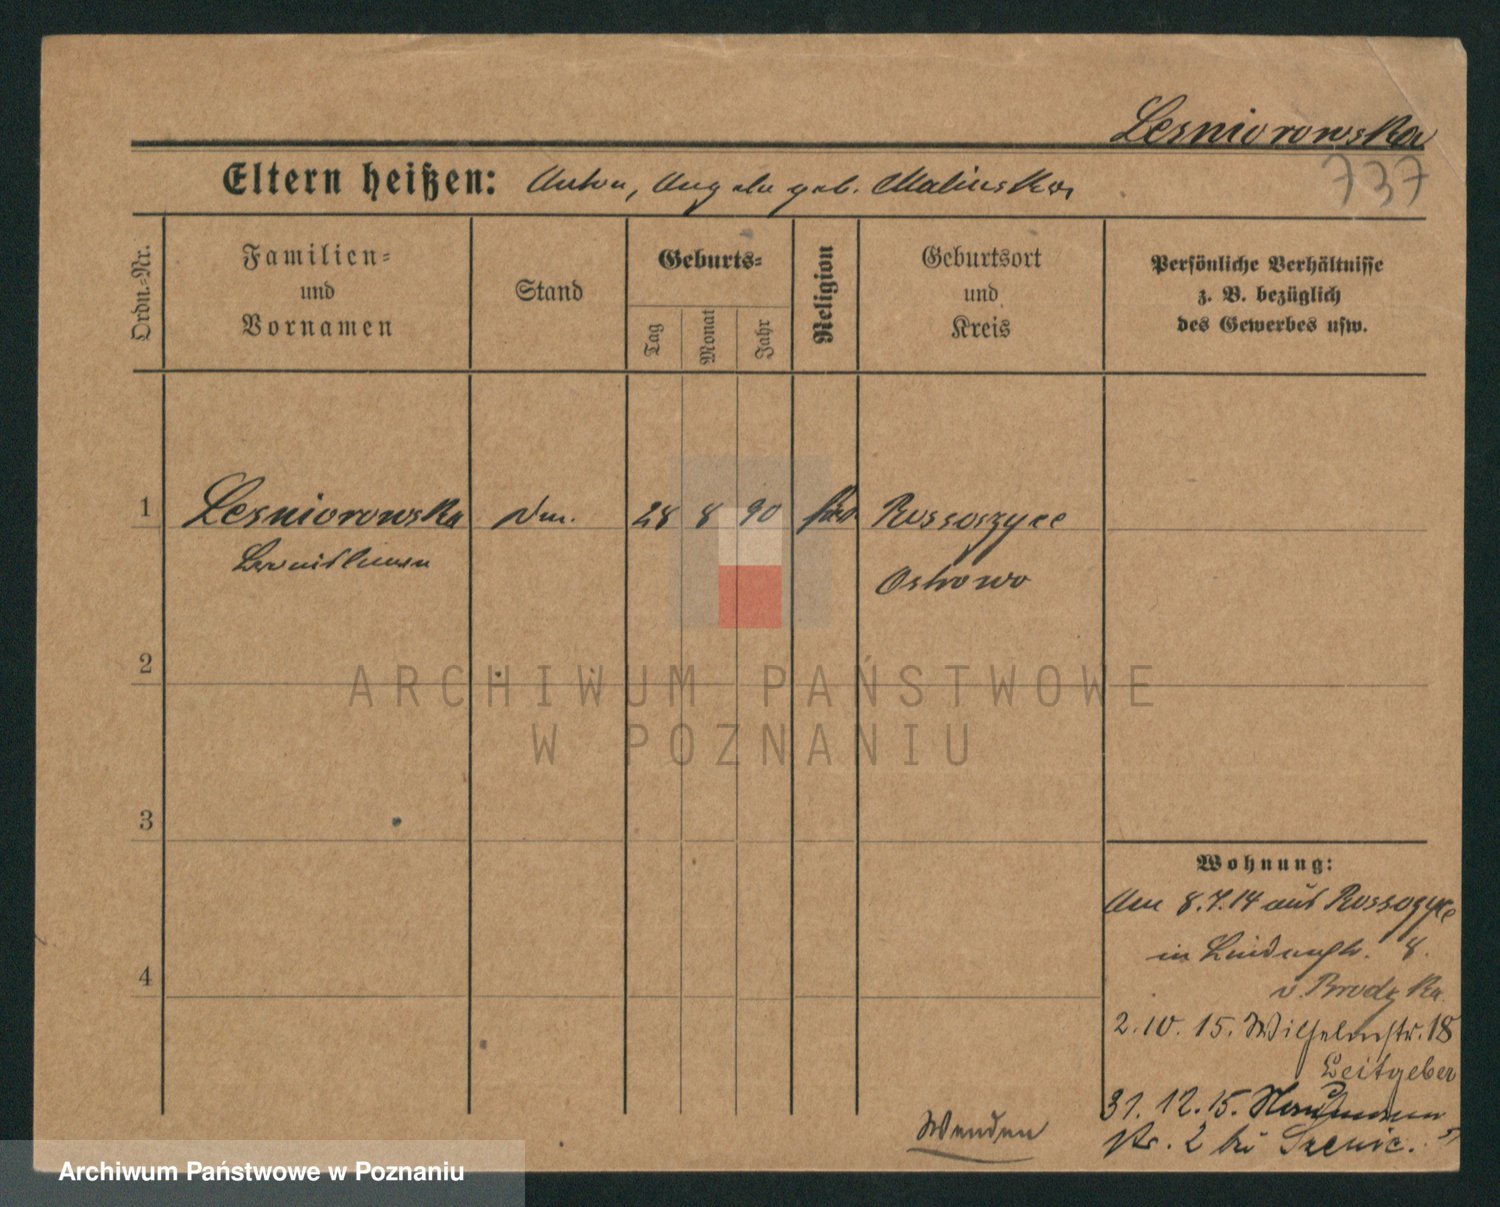 Lesniorowska
737
Eltern heißen: Anton, Angela geb. Malinska
Ordn.-Nr.
Familien-
und
Vornamen
Stand
Geburts-
Tag
Monat
Jahr
Religion
Geburtsort
und
Kreis
Persönliche Verhältnisse
z. B. bezüglich
des Gewerbes usw.
1 Lesniorowska 28 8 90 Rossoszyce
Bronislawa
Ostrowo
2
3
4
ARCHIWUM PAŃSTWOWE
W POZNANIU
Wohnung:
Am 8.7.14 aus Rossoszyce
in 8.
v. Brodzka
2.10.15. Wilhelmstr. 18
Leitgeber
31.12.15. Naumann
str. 2 bei
Wenden
Archiwum Państwowe w Poznaniu